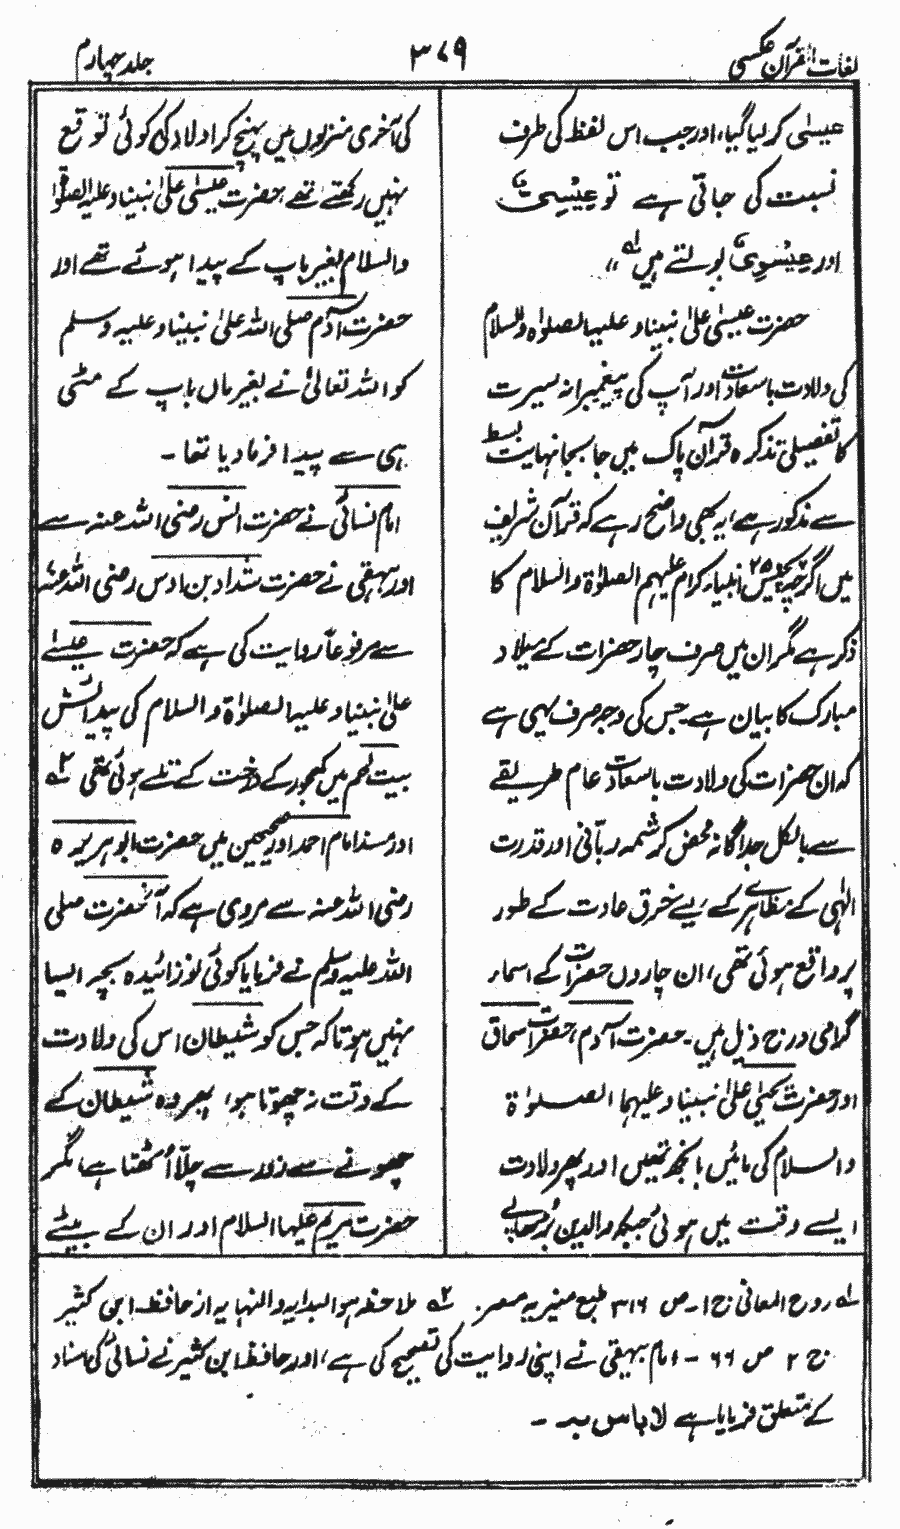 لغات القرآن عکسی
۳۷۹
جلد چہارم
عیسٰی کر لیا گیا، اور جب اس لفظ کی طرف
نسبت کی جاتی ہے تو عِیْسِیٌّ
اور عِیْسَوِیٌّ بولتے ہیں لہ ،،
حضرت عیسیٰ علیٰ نبینا و علیہا الصلوٰۃ والسلام
کی ولادت باسعادت اور آپ کی پیغمبرانہ سیرت
کا تفصیلی تذکرہ قرآن پاک میں جا بجا نہایت بسط
سے مذکور ہے، یہ بھی واضح رہے کہ قرآن شریف
میں اگرچہ پچیس ۲۵ انبیاء کرام علیہم الصلوٰۃ والسلام کا
ذکر ہے مگر ان میں صرف چار حضرات کے میلاد
مبارک کا بیان ہے۔ جس کی وجہ صرف یہی ہے
کہ ان حضرات کی ولادت باسعادت عام طریقے
سے بالکل جداگانہ محض کرشمہ ربّانی اور قدرت
الٰہی کے مظاہرے کے لیے خرق عادت کے طور
پر واقع ہوئی تھی، ان چاروں حضرات کے اسمار
گرامی درج ذیل ہیں۔ حضرت آدم، حضرات اسحاق
اور حضرت یحییٰ علیٰ نبینا و علیہما الصلوٰۃ
والسلام کی مائیں بانجھ تھیں اور پھر ولادت
ایسے وقت میں ہوئی جبکہ والدین بُڑھاپے
کی آخری منزلوں میں پہنچ کر اولاد کی کوئی توقع
نہیں رکھتے تھے، حضرت عیسٰی علیٰ نبینا و علیہ الصلوٰۃ
والسلام بغیر باپ کے پیدا ہوئے تھے اور
حضرت آدم صلی اللہ علیٰ نبینا و علیہ وسلم
کو اللہ تعالیٰ نے بغیر ماں باپ کے مٹی
ہی سے پیدا فرما دیا تھا۔
امام نسائی نے حضرت انس رضی اللہ عنہ سے
اور بیہقی نے حضرت شداد بن اوس رضی اللہ عنہ
سے مرفوعاً روایت کی ہے کہ حضرت عیسیٰ
علیٰ نبینا و علیہا الصلوٰۃ والسلام کی پیدائش
بیت لحم میں کھجور کے درخت کے تلے ہوئی تھی ۲ہ
اور مسند امام احمد اور صحیحین میں حضرت ابوہریرہ
رضی اللہ عنہ سے مروی ہے کہ آنحضرت صلی
اللہ علیہ وسلم نے فرمایا کوئی نوزائیدہ بچہ ایسا
نہیں ہوتا کہ جس کو شیطان اس کی ولادت
کے وقت نہ چھوتا ہو، پھر وہ شیطان کے
چھونے سے زور سے چلّا اُٹھتا ہے، مگر
حضرت مریم علیہا السلام اور ان کے بیٹے
لہ روح المعانی ج ا۔ ص ۳۱۶ طبع منیریہ مصر۔ ۲ہ ملاحظہ ہو البدایہ والنہایہ از حافظ ابن کثیر
ج ۲ ص ۶۶ - امام بیہقی نے اپنی روایت کی تصحیح کی ہے، اور حافظ ابن کثیر نے نسائی کی اسناد
کے متعلق فرمایا ہے لا باس بہ ۔